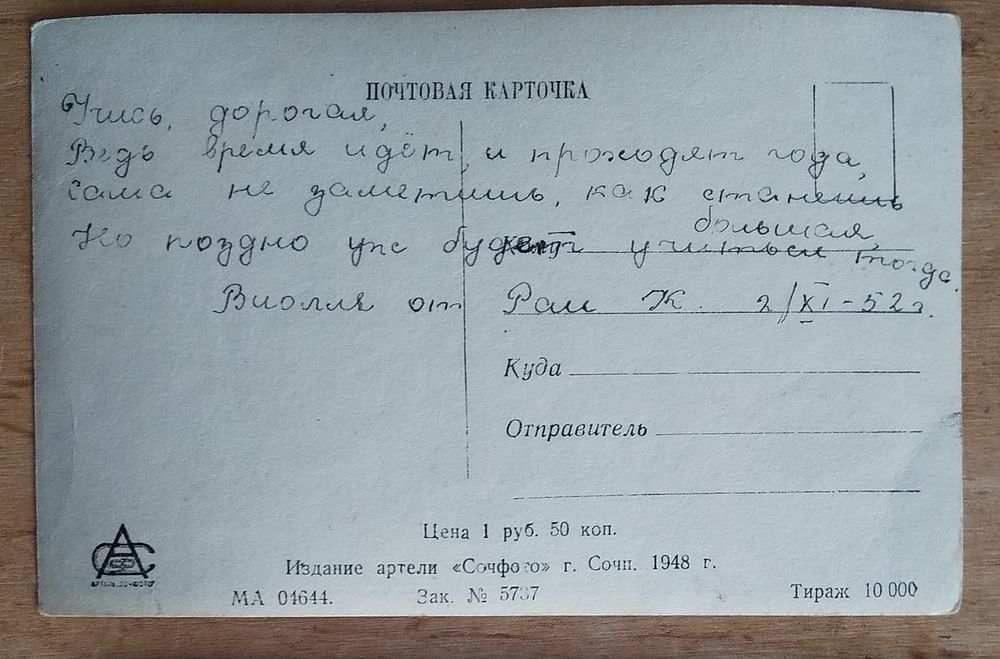 ПОЧТОВАЯ КАРТОЧКА
Учись, дорогая,
Ведь время идёт, и проходят года,
сама не заметишь, как станешь
большая,
Но поздно уж будет учиться тогда.
Кому
Виолле от Раи К. 2/XI-52г.
Куда
Отправитель
Цена 1 руб. 50 коп.
Издание артели «Сочфото» г. Сочи. 1948 г.
МА 04644. Зак. № Тираж 10 000
АСФ